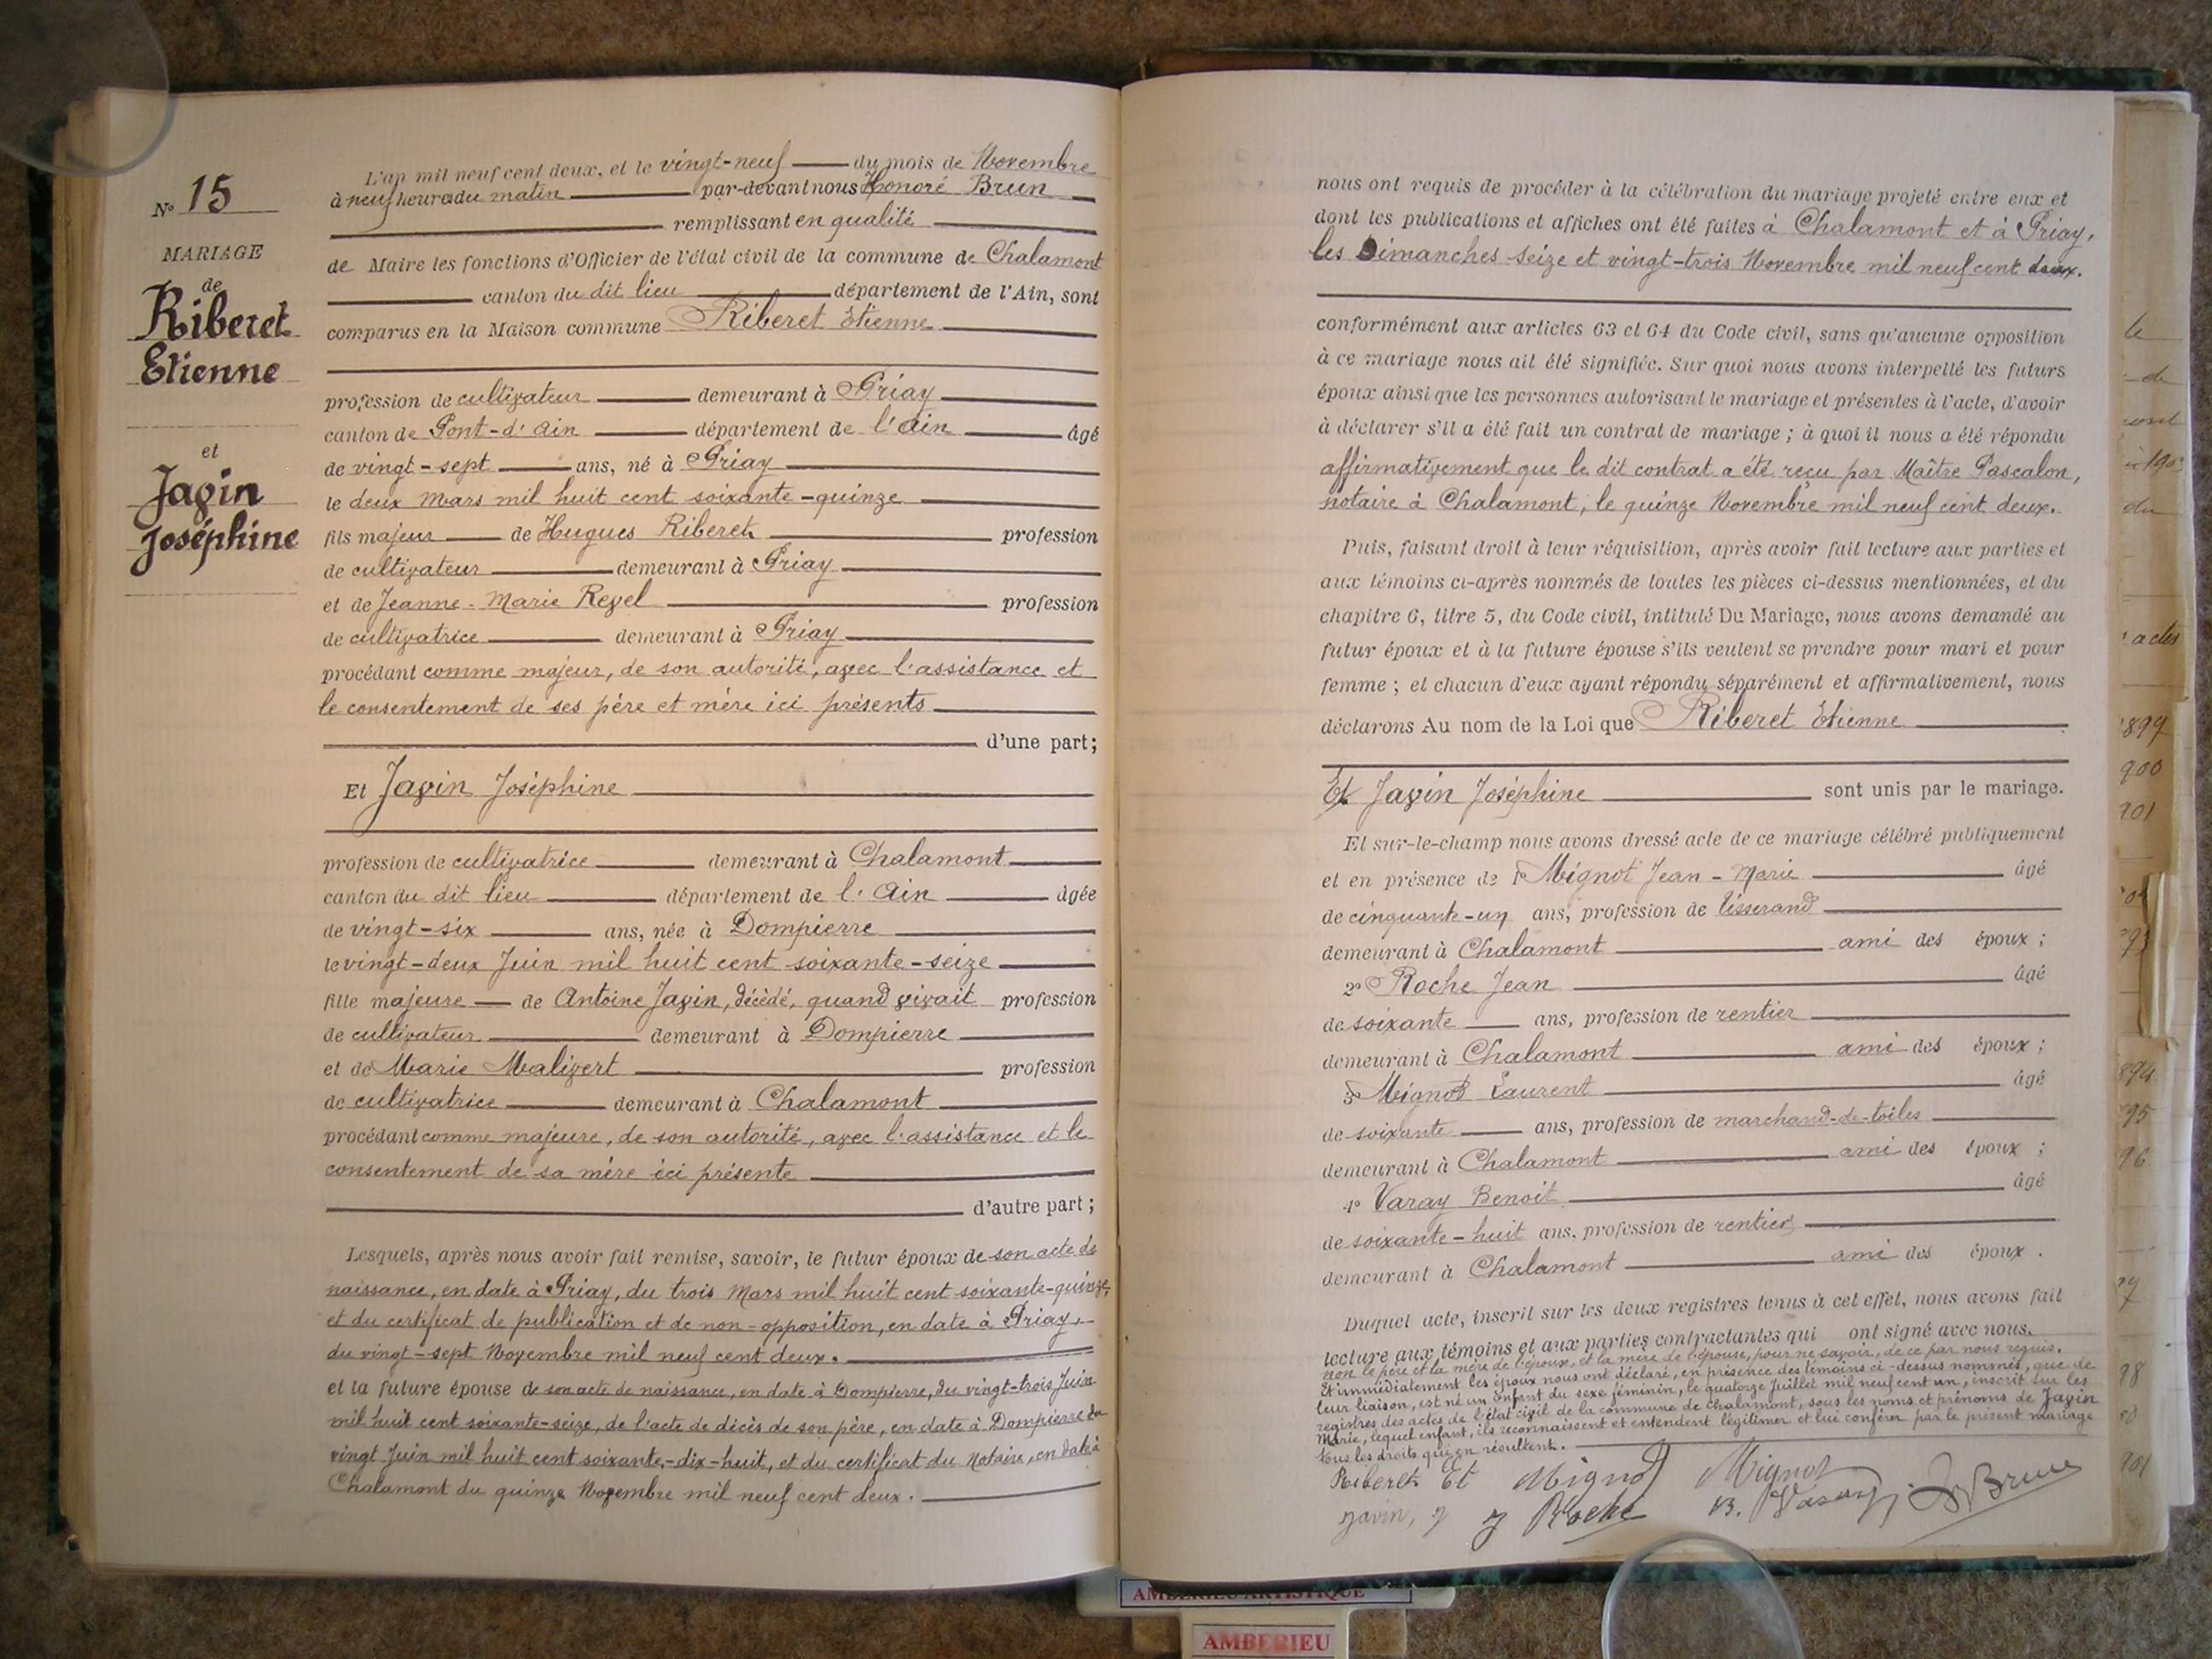 N° 15
MARIAGE
de
Riberet
Etienne
et
Javin
Joséphine
L'an mil neuf cent deux, et le vingt-neuf du mois de Novembre
à neuf heures du matin par-devant nous Honoré Brun
remplissant en qualité
de Maire les fonctions d'Officier de l'état civil de la commune de Chalamont
canton du dit lieu département de l'Ain, sont
comparus en la Maison commune Riberet Etienne
profession de cultivateur demeurant à Priay
canton de Pont-d'Ain département de l'Ain âgé
de vingt-sept ans, né à Priay
le deux Mars mil huit cent soixante-quinze
fils majeur de Hugues Riberet profession
de cultivateur demeurant à Priay
et de Jeanne-Marie Revel profession
de cultivatrice demeurant à Priay
procédant comme majeur, de son autorité, avec l'assistance et
le consentement de ses père et mère ici présents
d'une part;
Et Javin Joséphine
profession de cultivatrice demeurant à Chalamont
canton du dit lieu département de l'Ain âgée
de vingt-six ans, née à Dompierre
le vingt-deux Juin mil huit cent soixante-seize
fille majeure de Antoine Javin, décédé, quand vivait profession
de cultivateur demeurant à Dompierre
et de Marie Malivert profession
de cultivatrice demeurant à Chalamont
procédant comme majeure, de son autorité, avec l'assistance et le
consentement de sa mère ici présente
d'autre part;
Lesquels, après nous avoir fait remise, savoir, le futur époux de son acte de
naissance, en date à Priay, du trois Mars mil huit cent soixante-quinze,
et du certificat de publication et de non-opposition, en date à Priay,
du vingt-sept Novembre mil neuf cent deux.
et la future épouse de son acte de naissance, en date à Dompierre, du vingt-trois Juin
mil huit cent soixante-seize, de l'acte de décès de son père, en date à Dompierre du
vingt Juin mil huit cent soixante-dix-huit, et du certificat du Notaire, en date à
Chalamont du quinze Novembre mil neuf cent deux.
nous ont requis de procéder à la célébration du mariage projeté entre eux et
dont les publications et affiches ont été faites à Chalamont et à Priay,
les Dimanches seize et vingt-trois Novembre mil neuf cent deux.
conformément aux articles 63 et 64 du Code civil, sans qu'aucune opposition
à ce mariage nous ait été signifiée. Sur quoi nous avons interpellé les futurs
époux ainsi que les personnes autorisant le mariage et présentes à l'acte, d'avoir
à déclarer s'il a été fait un contrat de mariage; à quoi il nous a été répondu
affirmativement que le dit contrat a été reçu par Maître Pascalon,
notaire à Chalamont, le quinze Novembre mil neuf cent deux.
Puis, faisant droit à leur réquisition, après avoir fait lecture aux parties et
aux témoins ci-après nommés de toutes les pièces ci-dessus mentionnées, et du
chapitre 6, titre 5, du Code civil, intitulé Du Mariage, nous avons demandé au
futur époux et à la future épouse s'ils veulent se prendre pour mari et pour
femme; et chacun d'eux ayant répondu séparément et affirmativement, nous
déclarons Au nom de la Loi que Riberet Etienne
Et Javin Joséphine sont unis par le mariage.
Et sur-le-champ nous avons dressé acte de ce mariage célébré publiquement
et en présence de 1° Mignot Jean-Marie âgé
de cinquante-un ans, profession de tisserand
demeurant à Chalamont ami des époux;
2° Roche Jean âgé
de soixante ans, profession de rentier
demeurant à Chalamont ami des époux;
3° Mignot Laurent âgé
de soixante ans, profession de marchand-de-toiles
demeurant à Chalamont ami des époux;
4° Varay Benoit âgé
de soixante-huit ans, profession de rentier
demeurant à Chalamont ami des époux.
Duquel acte, inscrit sur les deux registres tenus à cet effet, nous avons fait
lecture aux témoins et aux parties contractantes qui ont signé avec nous.
non le père et la mère de l'époux, et la mère de l'épouse, pour ne savoir, de ce par nous requis.
Et immédiatement les époux nous ont déclaré, en présence des témoins ci-dessus nommés, que de
leur liaison, est né un enfant du sexe féminin, le quatorze Juillet mil neuf cent un, inscrit sur les
registres des actes de l'état civil de la commune de Chalamont, sous les noms et prénoms de Javin
Marie, lequel enfant, ils reconnaissent et entendent légitimer et lui conférer par le présent mariage
tous les droits qui en résultent.
Riberet Et Mignot Mignot
Javin, J J Roche B. Varay H Brun
le
de
sont
du
actes
1899
900
901
894
95
96
98
901
AMBERIEU ARTISTIQUE
AMBERIEU